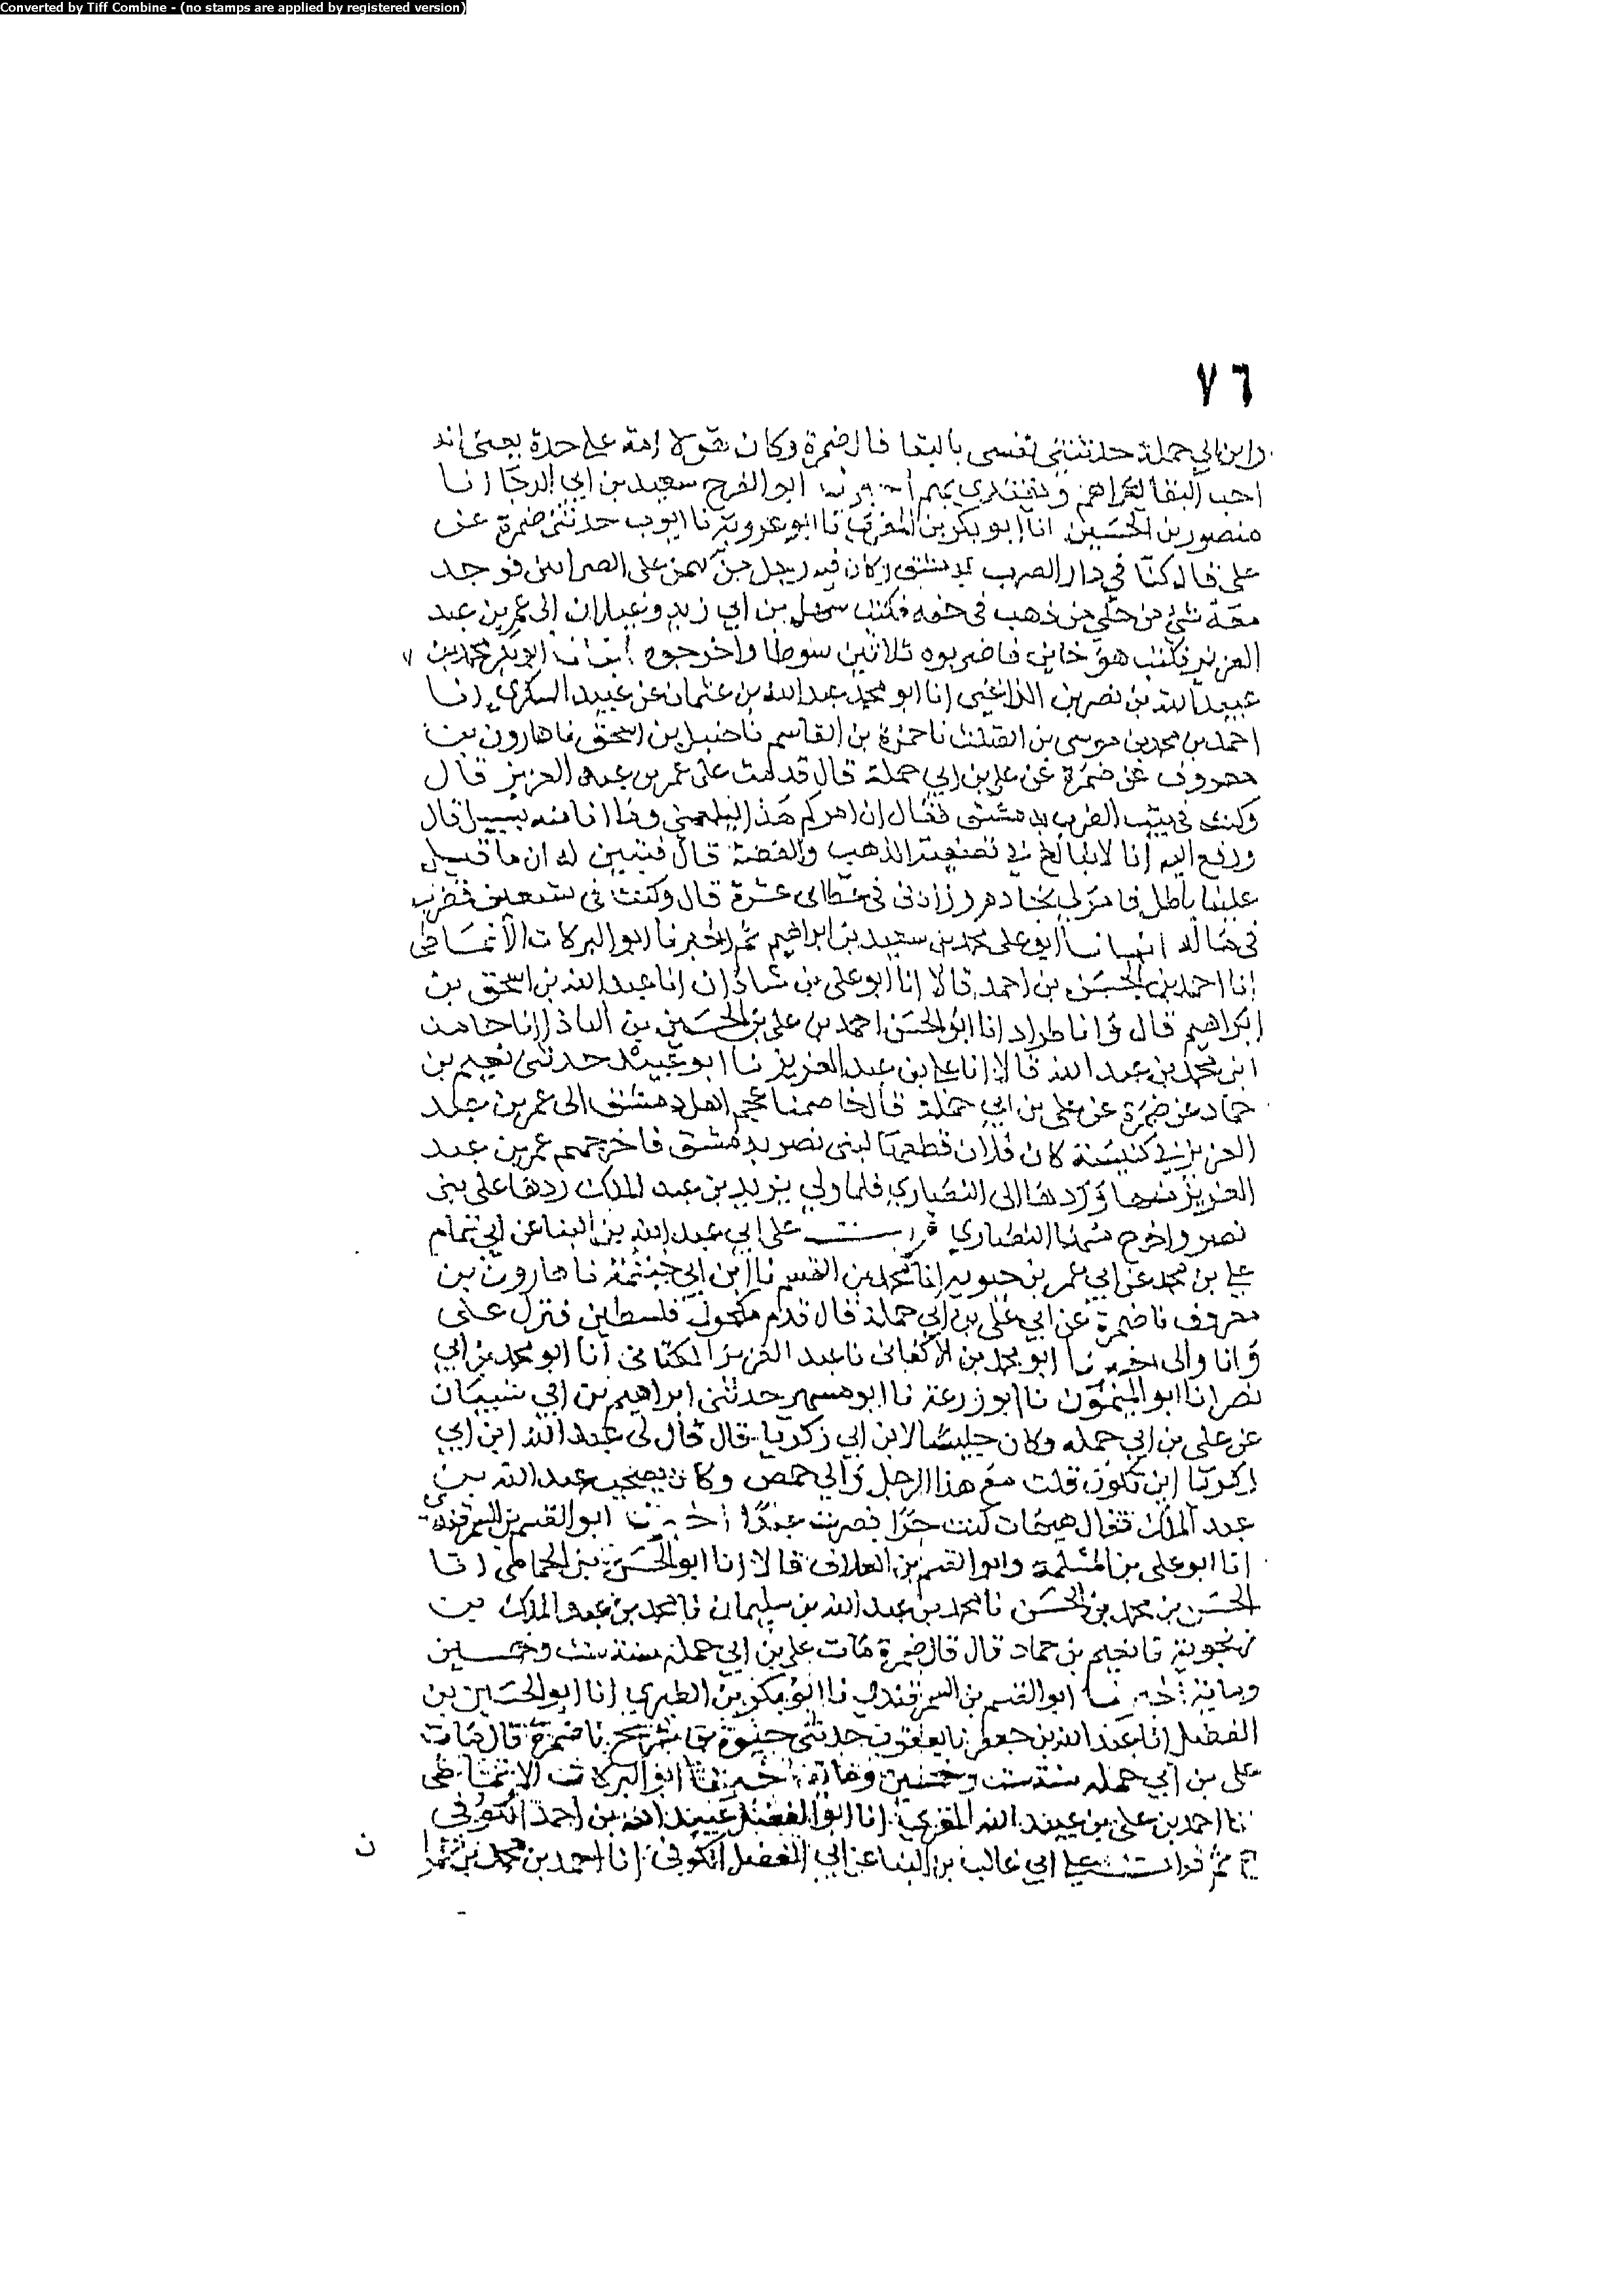 Converted by Tiff Combine - (no stamps are applied by registered version)
٧٦
رابن ابي حملة حدثتني نفسي بالبقا قال ضمرة وكان يقول امة على حدة يعني انه
احب البقا ليراهم ويقتدي بهم ابو الفرج سعيد بن ابي الرجا انا
منصور بن الحسين انا ابو بكر بن المقرئ نا ابو عروبة نا ايوب حدثني ضمرة عن
علي قال كنا في دار الضرب بدمشق وكان فيه رجل على فوجد
معه شي من حلي من ذهب في خفه فكتب بن ابي الى عمر بن عبد
العزيز فكتب هو خاين فاضربوه ثلاثين سوطا واخرجوه ابو بكر محمد بن
عبيد الله بن نصر بن انا ابو محمد عبد الله بن عثمان عن عبيد السكري انا
احمد بن محمد بن موسى بن الصلت نا حمزة بن القاسم نا حنبل بن اسحق نا هارون بن
معروف عن ضمرة عن علي بن ابي حملة قال قدمت على عمر بن عبد العزيز قال
وكنت في بيت الضرب بدمشق فقال ان امركم هذا وما انا منه بسبيل قال
ورفع اليه انا لا نبالغ في تصفية الذهب والفضة قال فتبين له ان ما قيل
علينا باطل فامر لي بخادم وزادني في عطائي عشرة قال وكنت في
في انبانا ابو علي محمد بن سعيد بن ابراهيم ثم اخبرنا ابو البركات الانماطي
انا احمد بن الحسن بن احمد قالا انا ابو علي بن شاذان انا عبد الله بن اسحق بن
ابراهيم قال وانا طراد انا ابو الحسن احمد بن علي بن الحسين بن الباذا انا حامد
ابن محمد بن عبد الله قالا انا علي بن عبد العزيز نا ابو عبيد حدثني نعيم بن
حماد عن ضمرة عن علي بن ابي حملة قال خاصمنا عجم اهل دمشق الى عمر بن عبد
العزيز في كنيسة كان فلان قطعها لبني نصر بدمشق فاخرجهم عمر بن عبد
العزيز منها وردها الى النصاري فلما ولي يزيد بن عبد الملك ردها على بني
نصر واخرج منها النصاري قرات على ابي عبد الله بن البنا عن ابي تمام
علي بن محمد عن ابي عمر بن حيويه انا محمد بن القسم نا ابن ابي خيثمة نا هارون بن
معروف نا ضمرة عن ابي علي بن ابي حملة قال قدم مكحول فلسطين فنزل على
وانا والى اخبرنا ابو محمد بن الاكفاني نا عبد العزيز الكتاني انا ابو محمد بن ابي
نصر انا ابو الميمون نا ابو زرعة نا ابو مسهر حدثني ابراهيم بن ابي شيبان
عن علي بن ابي حمله وكان جليسا لابن ابي زكريا قال قال لي عبد الله ابن ابي
زكريا اين تكون قلت مع هذا الرجل والي حمص وكان يصحب عبد الله بن
عبد الملك فقال هيهات كنت حرا فصرت عبدا اخبرنا ابو القسم بن السمرقندي
انا ابو علي بن المسلمة وابو القسم بن العلاف قالا انا ابو الحسن بن الحمامي انا
الحسن بن محمد بن الحسن نا محمد بن عبد الله بن سليمان نا محمد بن عبد الملك بن
زنجوية نا نعيم بن حماد قال قال ضمرة مات علي بن ابي حملة سنة ست وخمسين
ومايه اخبرنا ابو القسم بن السمرقندي نا ابو بكر بن الطبري انا ابو الحسين بن
الفضل انا عبد الله بن جعفر نا يعقوب حدثني حيوة بن شريح نا ضمرة قال مات
علي بن ابي حمله سنة ست وخمسين ومائة اخبرنا ابو البركات الانماطي
نا احمد بن علي بن عبيد الله المقرئ انا ابو الفضل عبيد الله بن احمد الكوفي
ح ثم قرات على ابي غالب بن البنا عن ابي الفضل الكوفي انا احمد بن محمد بن
ن